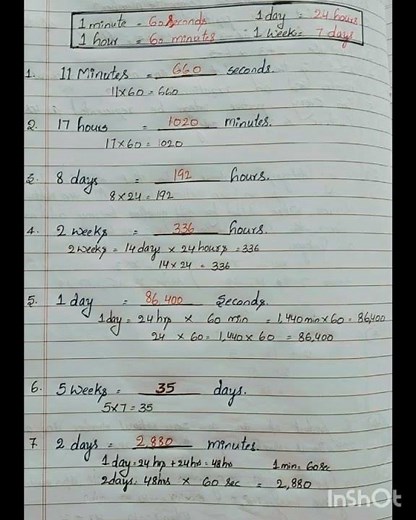 1 minute = 60 seconds 1 day = 24 hours
1 hour = 60 minutes 1 week = 7 days
1. 11 Minutes = 660 seconds.
11 x 60 = 660
2. 17 hours = 1020 minutes.
17 x 60 = 1020
3. 8 days = 192 hours.
8 x 24 = 192
4. 2 weeks = 336 hours.
2 weeks = 14 days x 24 hours = 336
14 x 24 = 336
5. 1 day = 86,400 Seconds.
1 day = 24 hrs x 60 min = 1,440 min x 60 = 86,400
24 x 60 = 1,440 x 60 = 86,400
6. 5 weeks = 35 days.
5 x 7 = 35
7. 2 days = 2,880 minutes.
1 day = 24 hrs + 24 hrs = 48 hrs 1 min = 60 sec
2 days = 48 hrs x 60 sec = 2,880
InShOt